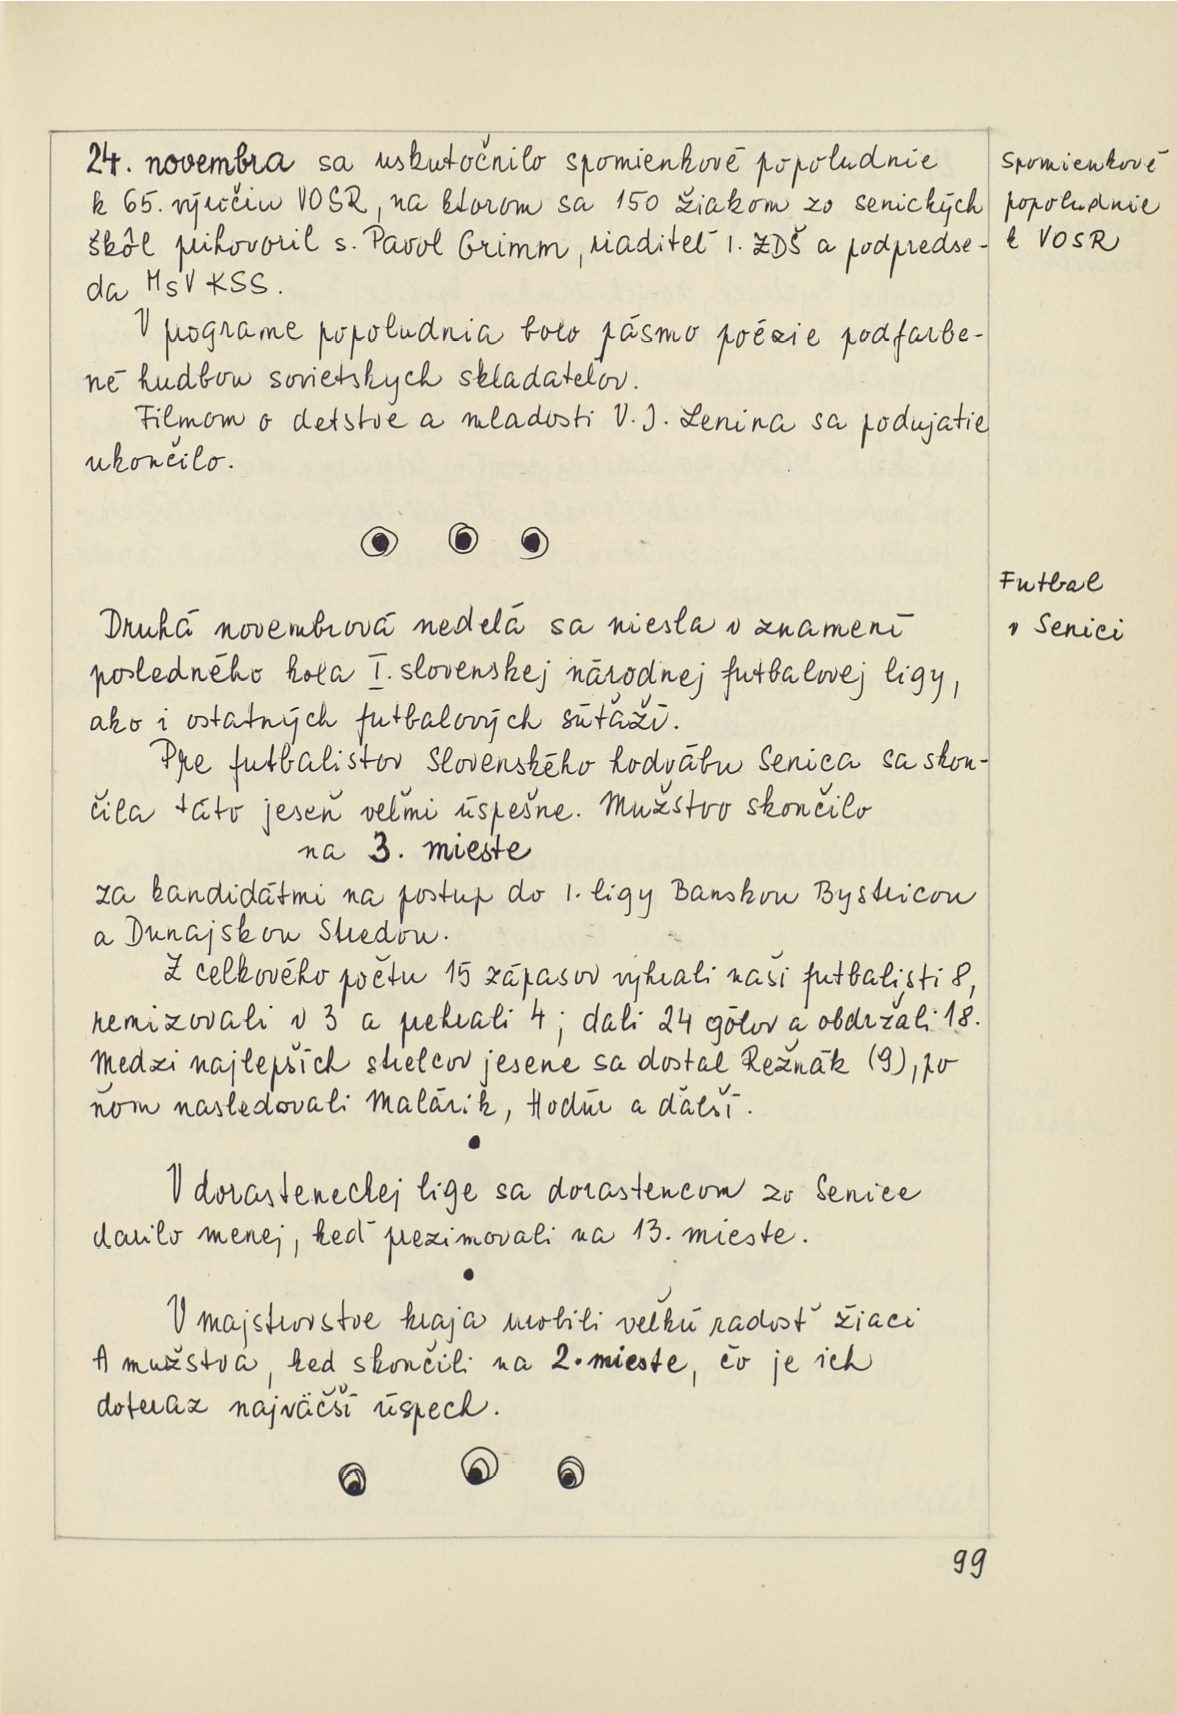 24. novembra sa uskutočnilo spomienkové popoludnie
k 65. výročiu VOSR, na ktorom sa 150 žiakom zo senických
škôl prihovoril s. Pavol Grimm, riaditeľ 1. ZDŠ a podpredse-
da MsV KSS.
V programe popoludnia bolo pásmo poézie podfarbe-
né hudbou sovietskych skladateľov.
Filmom o detstve a mladosti V. I. Lenina sa podujatie
ukončilo.
Spomienkové
popoludnie
k VOSR
Druhá novembrová nedeľá sa niesla v znamení
posledného kola I. slovenskej národnej futbalovej ligy,
ako i ostatných futbalových súťaží.
Pre futbalistov Slovenského hodvábu Senica sa skon-
čila táto jeseň veľmi úspešne. Mužstvo skončilo
na 3. mieste
za kandidátmi na postup do 1. ligy Banskou Bystricou
a Dunajskou Stredou.
Z celkového počtu 15 zápasov vyhrali naši futbalisti 8,
remizovali v 3 a prehrali 4; dali 24 gólov a obdržali 18.
Medzi najlepších strelcov jesene sa dostal Režnák (9), po
ňom nasledovali Malárik, Hodúr a ďalší.
V dorasteneckej lige sa dorastencom zo Senice
darilo menej, keď prezimovali na 13. mieste.
V majstrovstve kraja urobili veľkú radosť žiaci
A mužstva, keď skončili na 2. mieste, čo je ich
doteraz najväčší úspech.
Futbal
v Senici
99